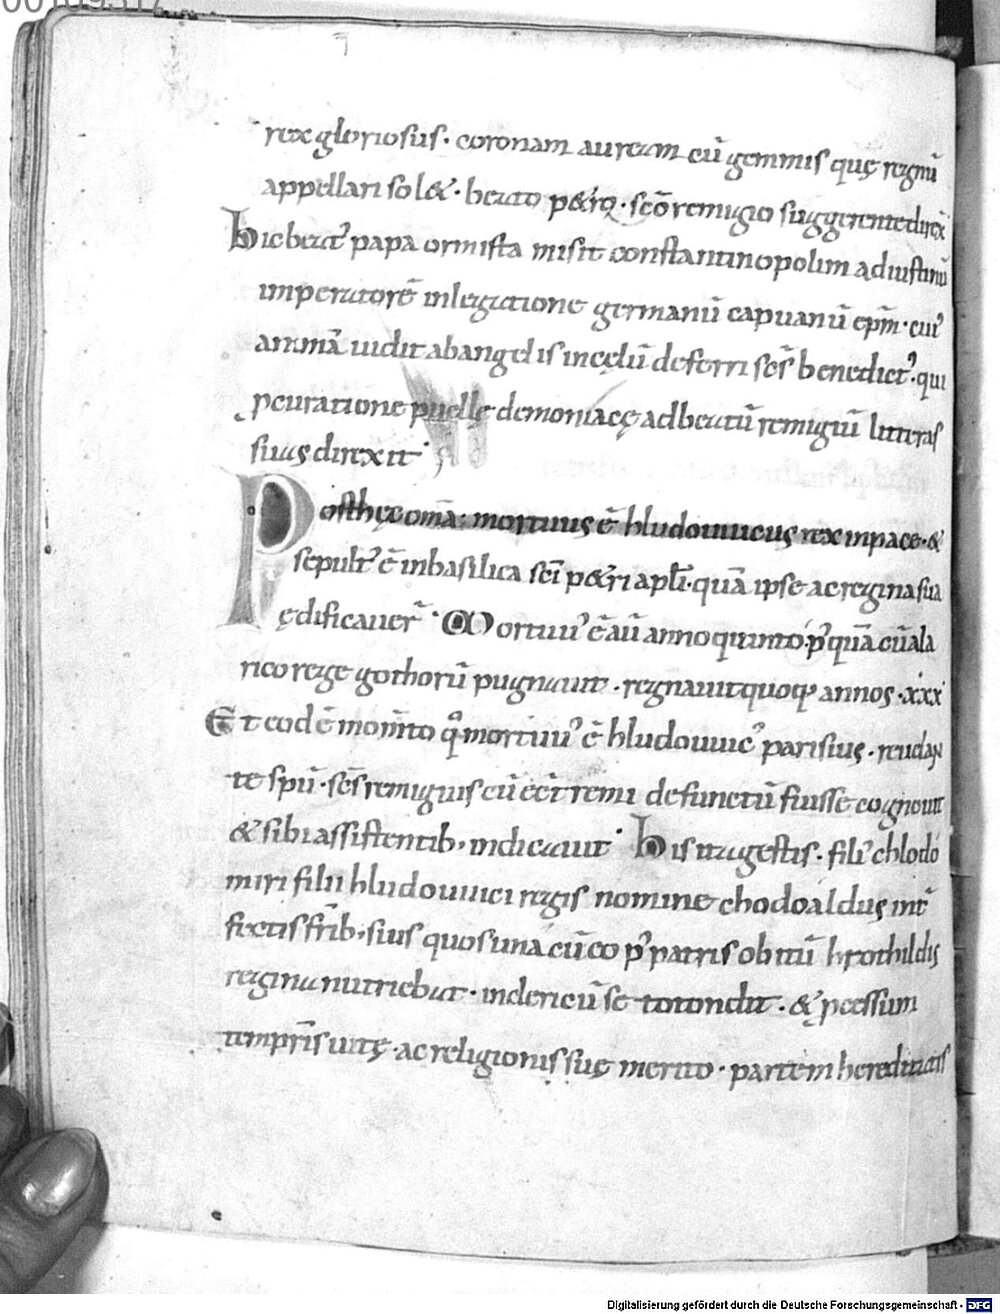 rex gloriosus· coronam auream cū gemmis quę regnū
appellari sol&· beato p&rọ· scō remigio suggerente direx̄
hic beat᷒ papa ormista misit constantinopolim ad iustinū
imperatorē in legatione germanū capuanū ep̄m· cui᷒
animā uidit ab angelis in cęlū deferri scs̄ benedict᷒· qui
p curatione puellę demoniacę ad beatū remigiū litteras
suas direxit·
Post hęc om̄a· mortuus ē hludouuicus rex in pace· &
sepult᷒ ē in basilica sc̄i p&ri apl̄i· quā ipse ac regina sua
ędificauer̄· Mortuu᷒ ē aū anno quinto· p᷒ quā cū ala
rico rege gothorū pugnauit· regnauit quoq· annos· xxx·
Et eodē mom̄to q̊ mortuu᷒ ē hludouuic᷒ parisius· reuelan
te sp̄u· scs̄ remigius cū eēt remi defunctū fuisse cognouit
& sibi assistentib· indicauit· his ita gestis· fili᷒ chlodo
miri filii hludouuici regis nomine chodoaldus int̄
fectis fr̄ib· suis quos una cū eo p᷒ patris obitū hrothildis
regina nutriebat· in clericū se totondit· & pcessum
temp̄ris uitę· ac religionis suę merito· partem hereditatis
Digitalisierung gefördert durch die Deutsche Forschungsgemeinschaft - DFG